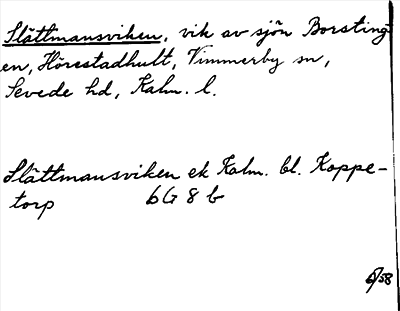 Slättmansviken, vik av sjön Borsting-
en, Hörestadhult, Vimmerby sn,
Sevede hd, Kalm. l.
Slättmansviken ek Kalm. bl. Koppe-
torp 6G 8 b
6/58